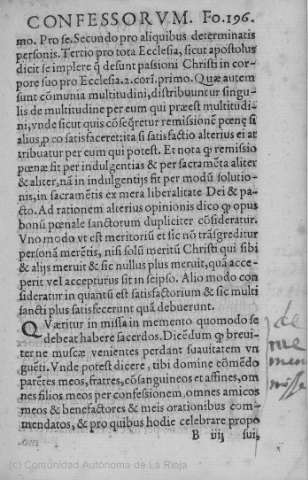 CONFESSORVM. Fo. 196.
mo. Pro se. Secundo pro aliquibus determinatis
personis. Tertio pro tota Ecclesia, sicut apostolus
dicit se implere q̃ desunt passioni Christi in cor-
pore suo pro Ecclesia. 2. cori. primo. Quæ autem
sunt cõmunia multitudini, distribuuntur singu-
lis de multitudine per eum qui præest multitudi-
ni, vnde sicut quis cõseq̃retur remissionẽ pœnę si
alius, p eo satisfaceret: ita si satisfactio alterius ei at
tribuatur per eum qui potest. Et nota q̃ remissio
pœnæ fit per indulgentias & per sacramẽta aliter
& aliter, nã in indulgentijs fit per modũ solutio-
nis, in sacramẽtis ex mera liberalitate Dei & pa-
cto. Ad rationem alterius opinionis dico q̃ opus
bonũ pœnale sanctorum dupliciter cõsideratur.
Vno modo vt est meritoriũ et sic nõ trãsgreditur
personã merẽtis, nisi solũ meritũ Christi qui sibi
& alijs meruit & sic nullus plus meruit, quã acce-
perit vel accepturus sit in seipso. Alio modo con
sideratur in quantũ est satisfactorium & sic multi
sancti plus satisfecerunt quã debuerunt.
Quæritur in missa in memento quomodo se
debeat habere sacerdos. Dicẽdum q̃ breui-
ter ne muscæ venientes perdant suauitatem vn
guẽti. Vnde potest dicere, tibi domine cõmẽdo
parẽtes meos, fratres, cõsanguineos et affines, om
nes filios meos per confessionem, omnes amicos
meos & benefactores & meis orationibus com-
mendatos, & pro quibus hodie celebrare propo
B iiij sui,
de
me
men
misse
(c) Comunidad Autónoma de La Rioja